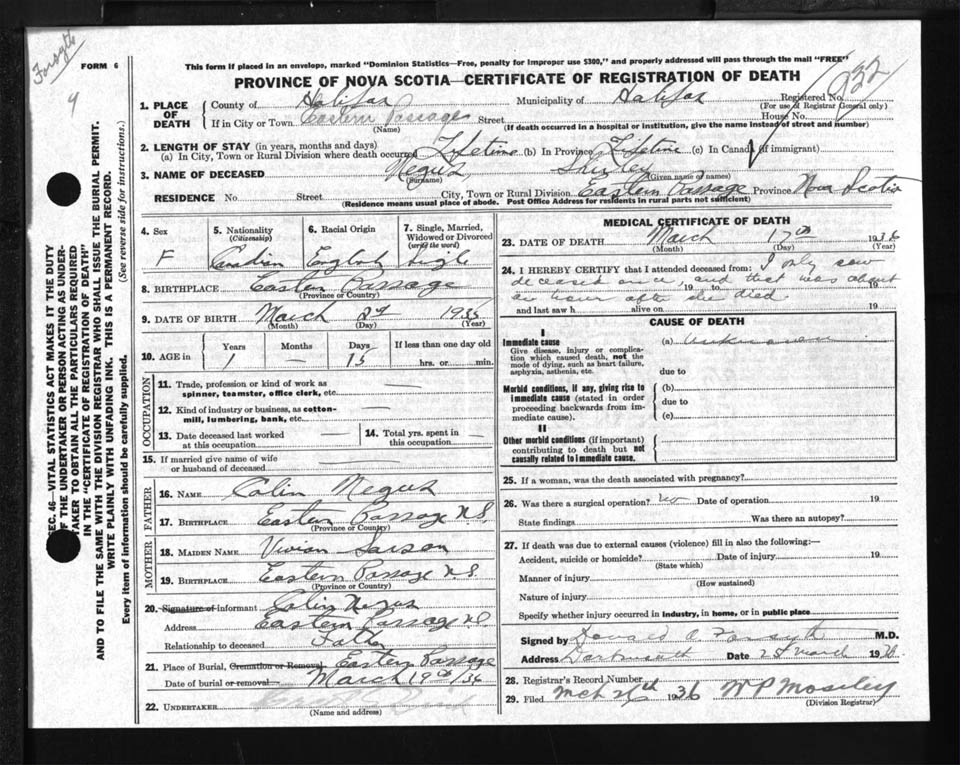 Forsyth
4
FORM 6
This form if placed in an envelope, marked "Dominion Statistics—Free, penalty for improper use $300," and properly addressed will pass through the mail "FREE"
PROVINCE OF NOVA SCOTIA—CERTIFICATE OF REGISTRATION OF DEATH
932
1. PLACE OF DEATH
County of Halifax Municipality of Halifax Registered No.
(For use of Registrar General only)
If in City or Town Eastern Passage Street House No.
(Name) (If death occurred in a hospital or institution, give the name instead of street and number)
2. LENGTH OF STAY (in years, months and days)
(a) In City, Town or Rural Division where death occurred Lifetime (b) In Province Lifetime (c) In Canada (if immigrant)
3. NAME OF DECEASED Negus Shirley
(Surname) (Given name or names)
RESIDENCE No. Street City, Town or Rural Division Eastern Passage Province Nova Scotia
(Residence means usual place of abode. Post Office Address for residents in rural parts not sufficient)
4. Sex
F
5. Nationality (Citizenship)
Canadian
6. Racial Origin
English
7. Single, Married, Widowed or Divorced (write the word)
Single
8. BIRTHPLACE Eastern Passage
(Province or Country)
9. DATE OF BIRTH March 2nd 1935
(Month) (Day) (Year)
10. AGE in
Years Months Days If less than one day old
1 — 15 hrs. or min.
OCCUPATION
11. Trade, profession or kind of work as spinner, teamster, office clerk, etc. —
12. Kind of industry or business, as cotton-mill, lumbering, bank, etc. —
13. Date deceased last worked at this occupation —
14. Total yrs. spent in this occupation —
15. If married give name of wife or husband of deceased —
FATHER
16. NAME Colin Negus
17. BIRTHPLACE Eastern Passage N.S.
(Province or Country)
MOTHER
18. MAIDEN NAME Vivian
19. BIRTHPLACE Eastern Passage N.S.
(Province or Country)
20. Signature of informant Colin Negus
Address Eastern Passage N.S.
Relationship to deceased Father
21. Place of Burial, Cremation or Removal Eastern Passage
Date of burial or removal March 19th/36
22. UNDERTAKER
(Name and address)
MEDICAL CERTIFICATE OF DEATH
23. DATE OF DEATH March 17th 1936
(Month) (Day) (Year)
24. I HEREBY CERTIFY that I attended deceased from: I only saw
deceased once, 19 to and that was about 19
an hour after she died
and last saw h alive on 19
CAUSE OF DEATH
I
Immediate cause (a) unknown
Give disease, injury or complication which caused death, not the mode of dying, such as heart failure, asphyxia, asthenia, etc.
due to
Morbid conditions, if any, giving rise to immediate cause (stated in order proceeding backwards from immediate cause).
(b)
due to
(c)
II
Other morbid conditions (if important) contributing to death but not causally related to immediate cause.
25. If a woman, was the death associated with pregnancy?
26. Was there a surgical operation? no Date of operation 19
State findings Was there an autopsy?
27. If death was due to external causes (violence) fill in also the following:—
Accident, suicide or homicide? Date of injury 19
(State which)
Manner of injury
(How sustained)
Nature of injury
Specify whether injury occurred in industry, in home, or in public place
Signed by Donald A. Forsyth M.D.
Address Dartmouth Date March 1936
28. Registrar's Record Number
29. Filed Mch 26th 1936 W P Moseley
(Division Registrar)
SEC. 46—VITAL STATISTICS ACT MAKES IT THE DUTY
OF THE UNDERTAKER OR PERSON ACTING AS UNDER-
TAKER TO OBTAIN ALL THE PARTICULARS REQUIRED
IN THE "CERTIFICATE OF REGISTRATION OF DEATH"
AND TO FILE THE SAME WITH THE DIVISION REGISTRAR WHO SHALL ISSUE THE BURIAL PERMIT.
WRITE PLAINLY WITH UNFADING INK. THIS IS A PERMANENT RECORD.
Every item of information should be carefully supplied. (See reverse side for instructions.)